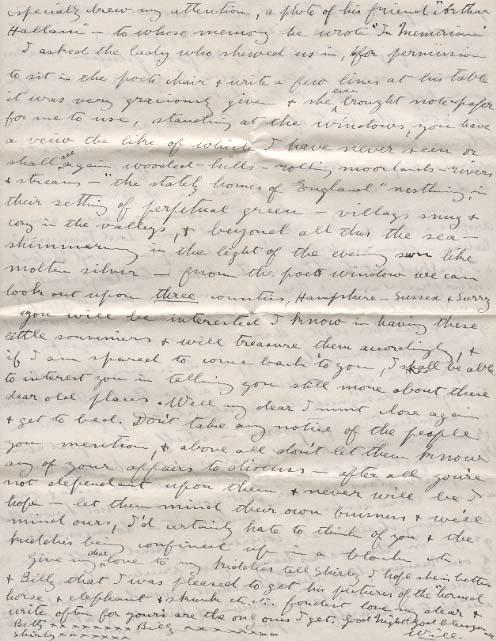 especially drew my attention, a photo of his friend "Arthur
Hallam" - to whose memory he wrote "In Memoriam"
I asked the lady who shewed us in, for permission
to sit in the poets chair & write a few lines at his table
it was very graciously given & she even brought note-paper
for me to use, standing at the windows, you have
a veiw the like of which I have never seen or
shall see again wooded-hills - rolling moorlands - rivers
& streams - "the stately homes of England" nestling in
their setting of perpetual green - villages snug &
cosy in the valleys, & beyond all this the sea -
shimmering in the light of the evening sun like
molten silver - from the poets window we can
look out upon three counties, Hampshire - Sussex & Surrey
you will be interested I know in having these
little souveniers & will treasure them accordingly, &
if I am spared to come back to you, I shall be able
to interest you in telling you still more about these
dear old places. Well my dear I must close again
& get to bed. Don't take any notice of the people
you mention, & above all don't let them know
any of your affairs to discuss - after all you're
not dependant upon them & never will be I
hope - let them mind their own business & we'll
mind ours, I'd certainly hate to think of you & the
kiddies being confined up in a block etc.
Give my dear love to my kiddies tell Shirley I hope she is better
& Billy that I was pleased to get his pictures of the
horse & elephant & skunk etc. etc. fondest love my dear &
write often for yours are the only ones I get, Good Night God Bless you
Betty x x x x x x x Billy x x x x x x x Will
Shirley x x x x x x x